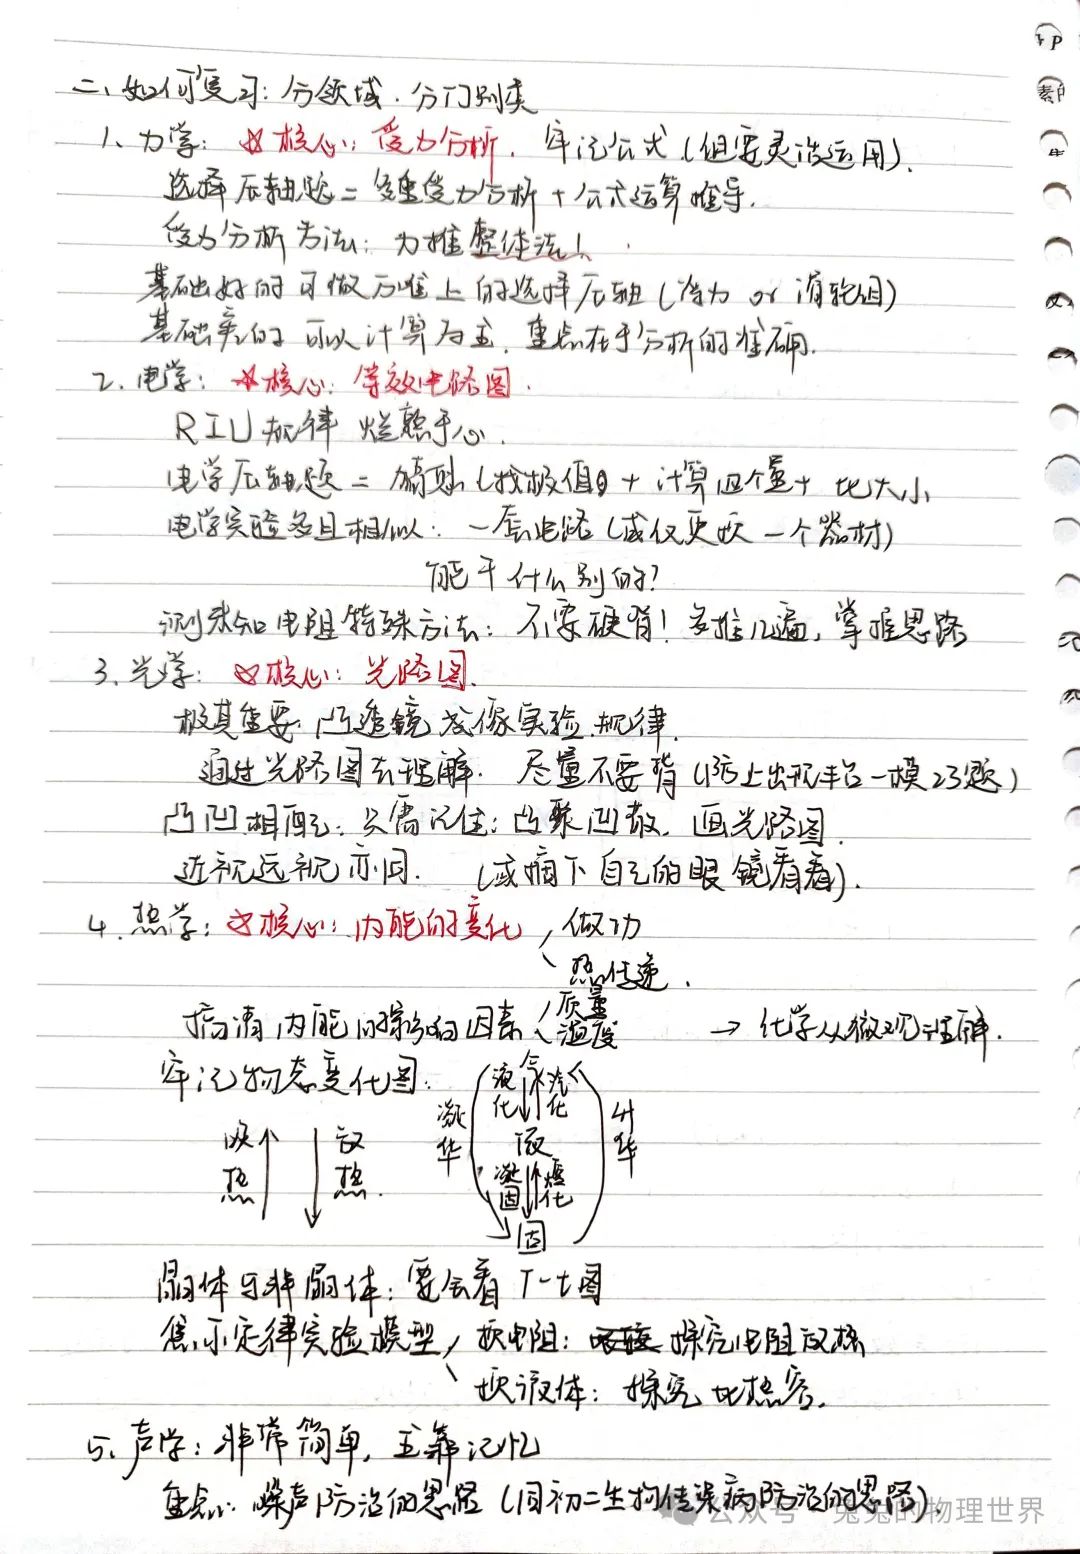 二、如何复习：分领域．分门别类
1、力学：☆核心：受力分析．牢记公式（但要灵活运用）．
选择压轴题＝多重受力分析＋公式运算推导．
受力分析方法：力推整体法！
基础好的可做历准上的选择压轴（浮力 or 滑轮组）
基础差的可以计算为主．重点在于分析的准确．
2．电学：☆核心：等效电路图．
RIU规律 烂熟于心．
电学压轴题＝ （找极值）＋计算四个量＋比大小
电学实验多且相似：一套电路（或仅更换一个器材）
能干什么别的？
测未知电阻特殊方法：不要硬背！多推几遍，掌握思路
3、光学：☆核心：光路图．
极其重要：凸透镜成像实验．规律．
通过光路图去理解．尽量不要背（防止出现丰台一模23题）
凸凹相配：只需记住：凸聚凹散．画光路图．
近视远视亦同．（或摘下自己的眼镜看看）．
4．热学：☆核心：内能的变化 做功
热传递．
搞清内能的影响因素 质量 温度 → 化学从微观理解．
牢记物态变化图：
吸热 放热
凝华 液化 气 汽化 升华
液
凝固 熔化
固
晶体与非晶体：要会看T-t图
焦耳定律实验模型 换电阻：探究电阻放热
换液体：探究比热容．
5、声学：非常简单，主靠记忆
重点：噪声防治的思路（同初二生物传染病防治的思路）．
公众号·兔兔的物理世界